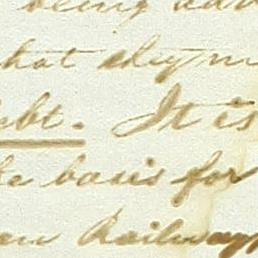 being
that they
ebt. It is
basis for
Railway